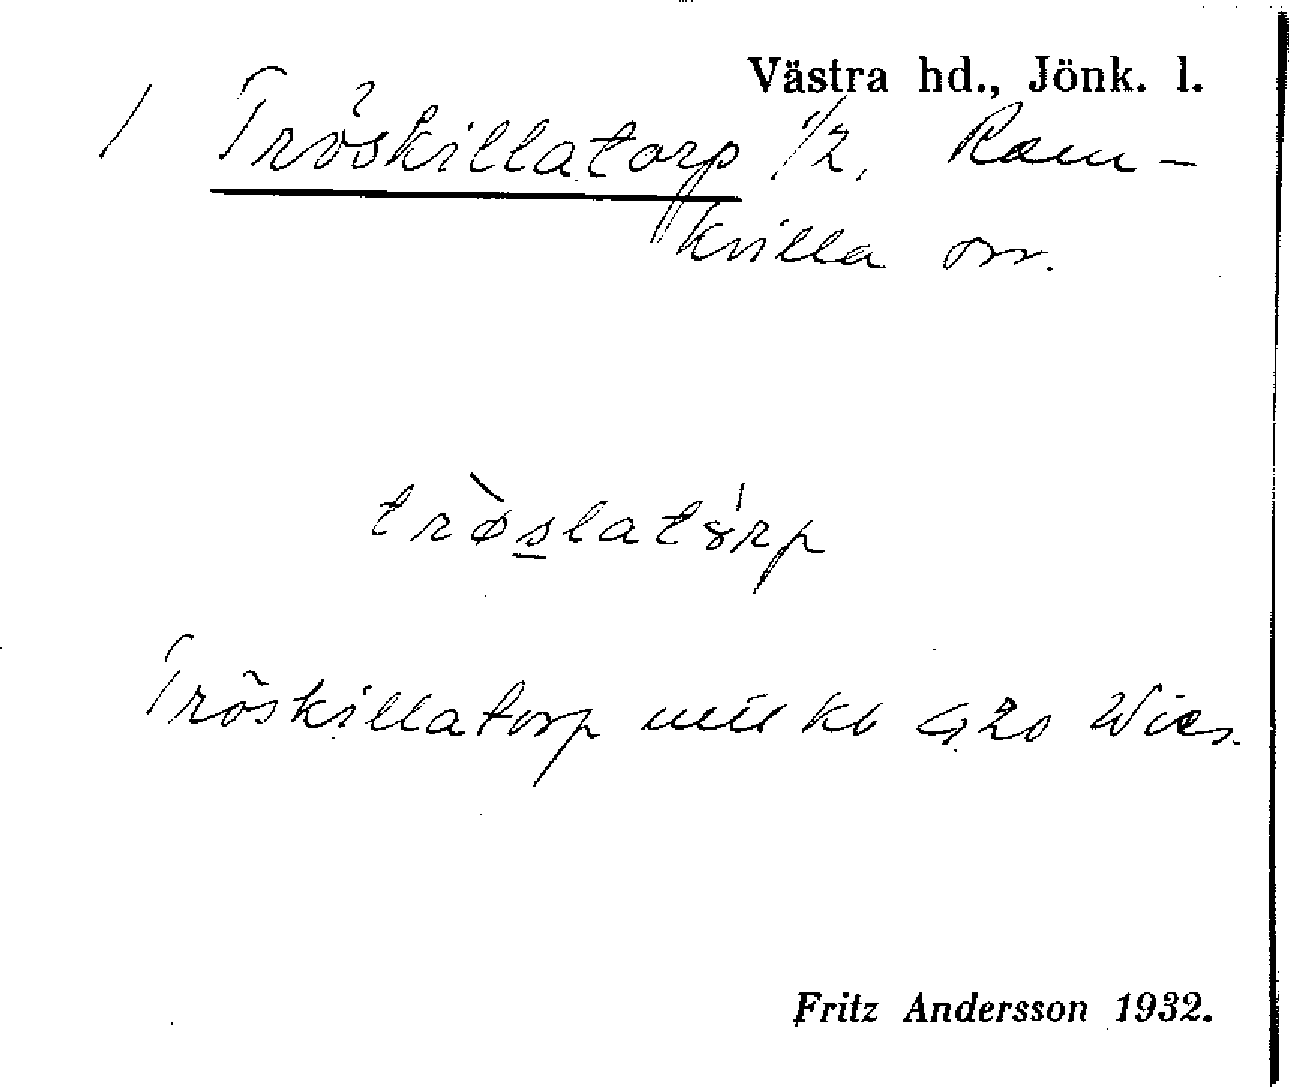 Västra hd., Jönk. l.
1 Tröskillatorp 1/2, Ram-
kvilla sn.
trøslatorp
Tröskillatorp Wies.
Fritz Andersson 1932.